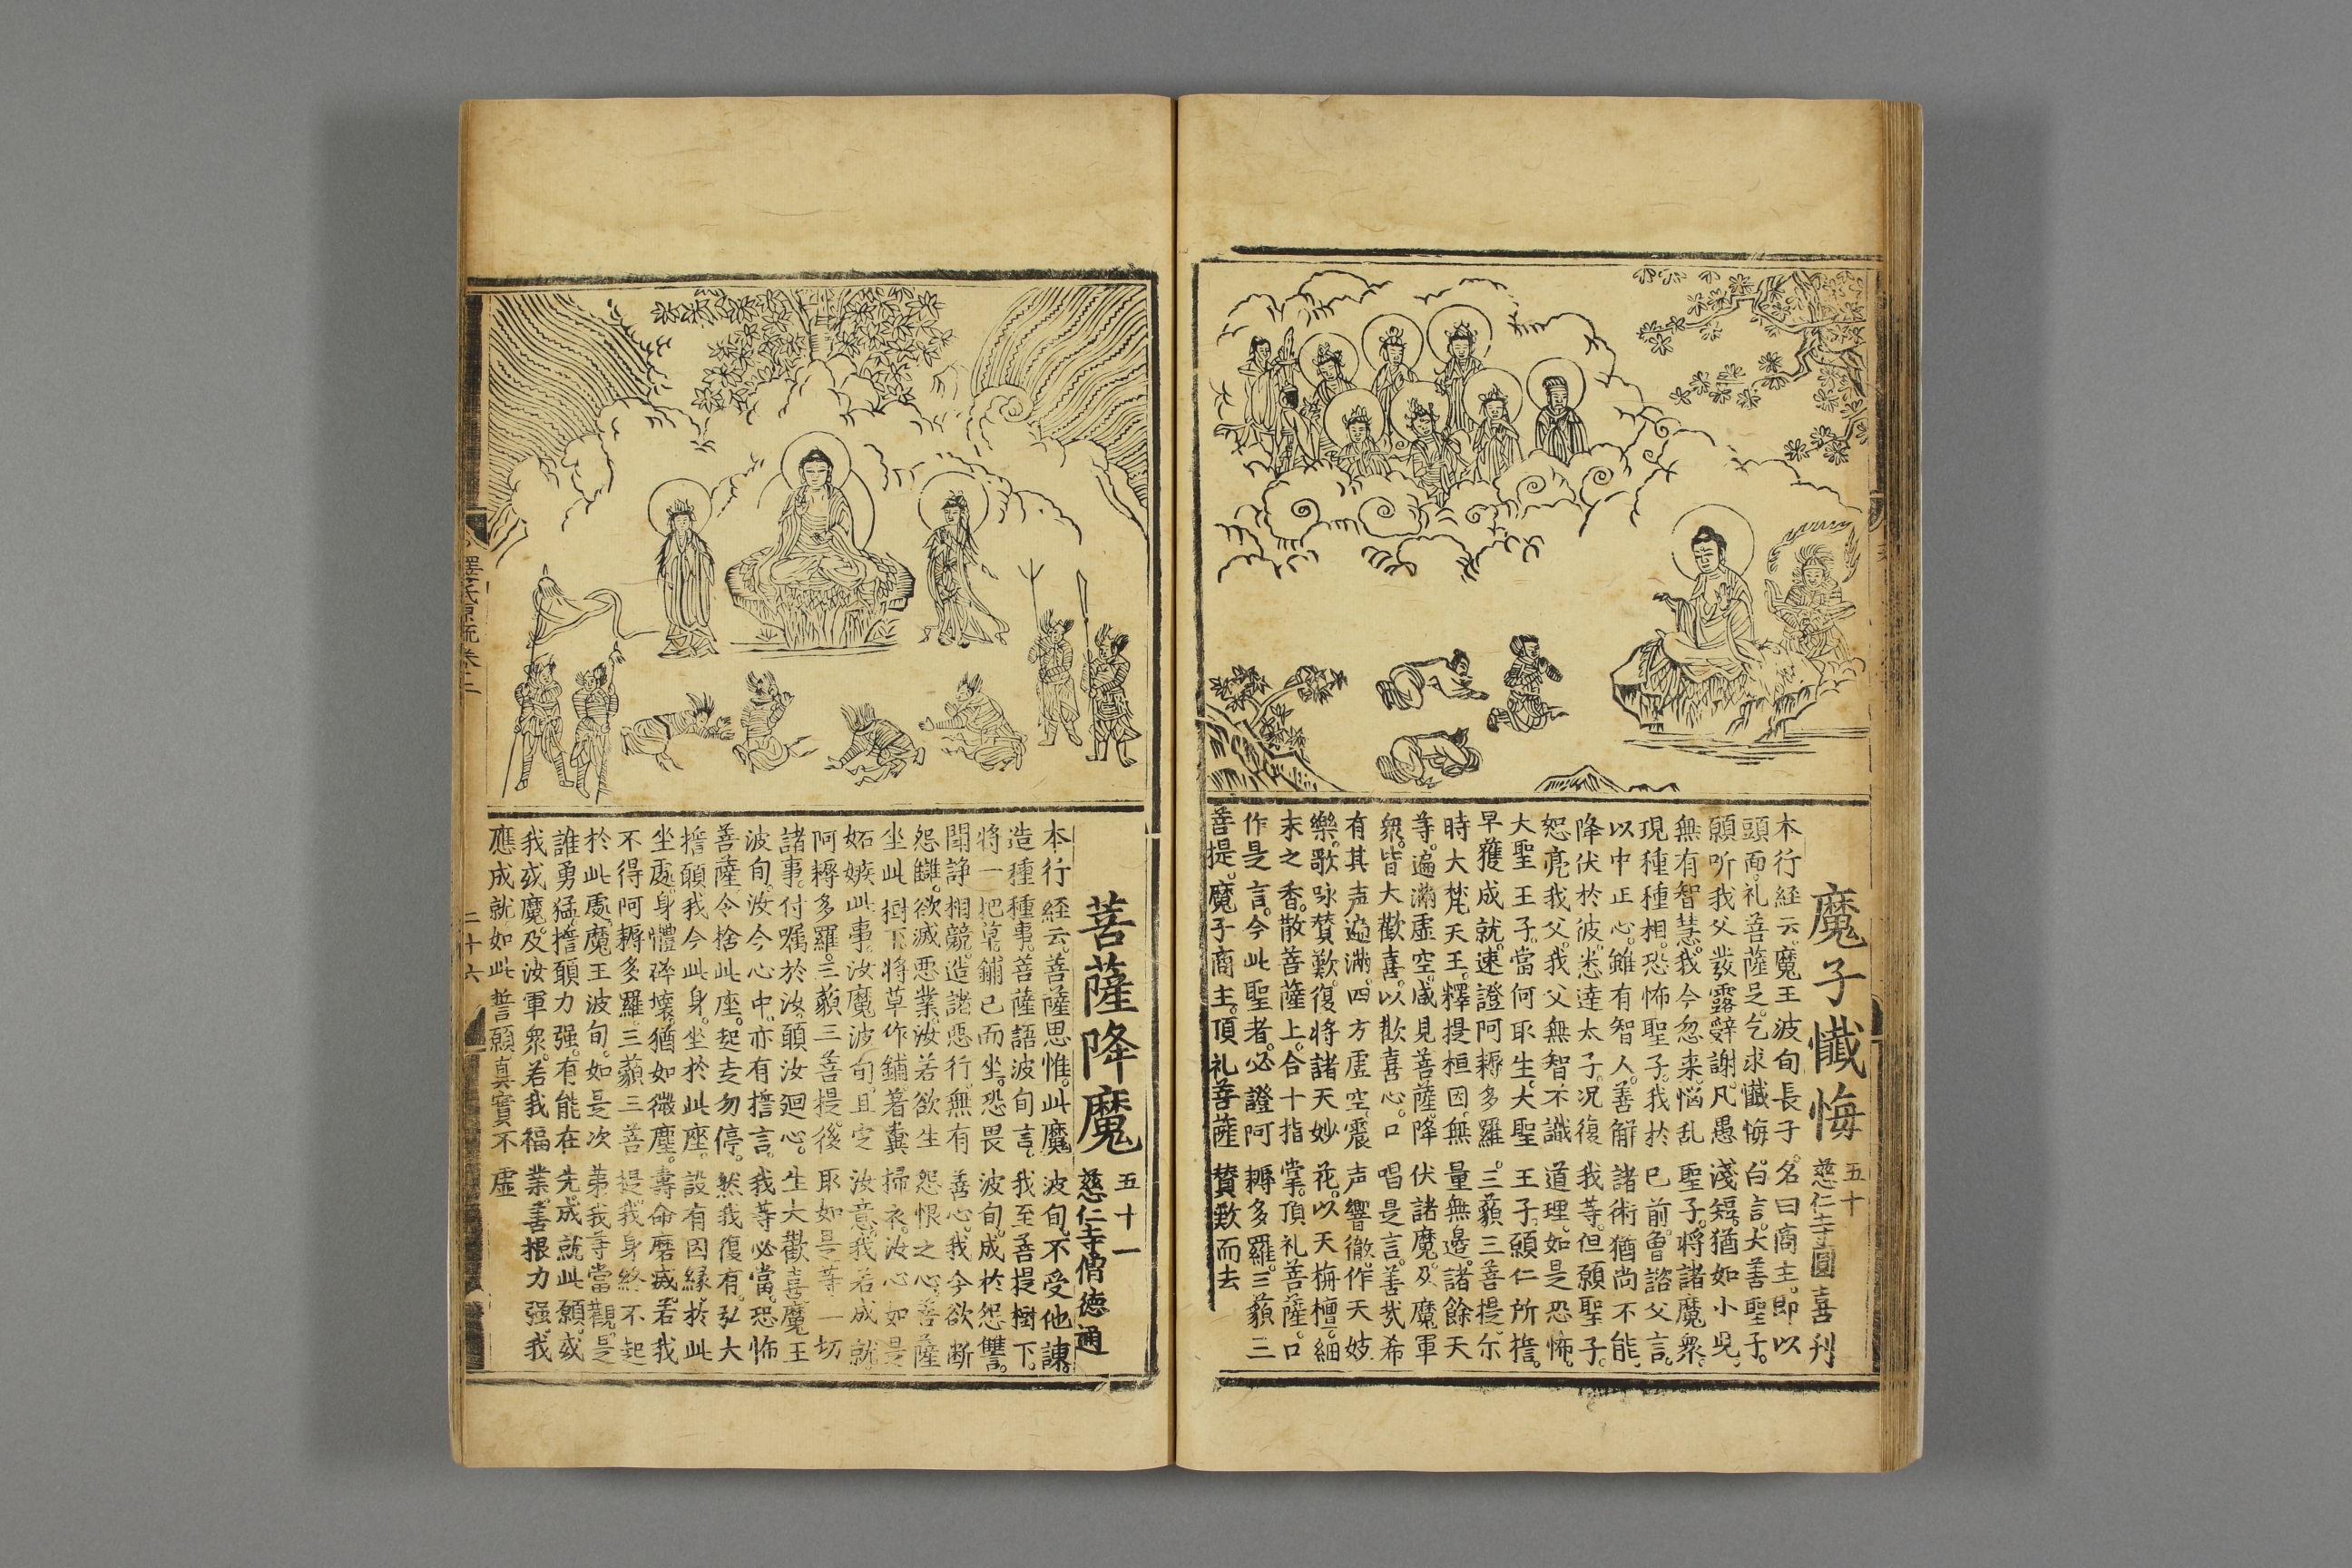 魔子懺悔
五十
慈仁寺圓喜刋
本行経云。魔王波旬長子。名曰商主。即以
頭面礼菩薩足。乞求懺悔。白言。大善聖子。
願听我父發露辤謝。凡愚淺短。猶如小児。
無有智慧。我今忽来。惱乱聖子。將諸魔衆。
現種種相。恐怖聖子。我於已前。曾諮父言。
以中正心。雖有智人。善解諸術。猶尚不能。
降伏於彼。悉達太子。况復我等。但願聖子。
恕亮我父。我父無智。不識道理。如是恐怖。
大聖王子。當何取生。大聖王子。願仁所擔。
早獲成就。速證阿耨多羅。三藐三菩提。尓
時大梵天王。釋提桓因。無量無邊。諸餘天
等。遍滿虛空。咸見菩薩。降伏諸魔。及魔軍
衆。皆大歡喜。以歡喜心。口唱是言。善㢤希
有。其声遍滿。四方虛空。震声響徹。作天妓
樂。歌咏賛歎。復将諸天妙花。以天栴檀。細
末之香。散菩薩上。合十指掌。頂礼菩薩。口
作是言。今此聖者。必證阿耨多羅。三藐三
菩提。魔子商主。頂礼菩薩賛歎而去
菩薩降魔
五十一
慈仁寺僧德通
本行経云。菩薩思惟。此魔波旬。不受他諫。
造種種事。菩薩語波旬言。我至菩提樹下。
将一把草。鋪已而坐。恐畏波旬。成於怨讐。
鬪諍相競。造諸惡行。無有善心。我今欲断
怨讎。欲滅惡業。汝若欲生怨恨之心。菩薩
坐此樹下。将草作鋪。著糞掃衣。汝心如是
妬嫉此事。汝魔波旬。且定汝意。我若成就。
阿耨多羅。三藐三菩提。後取如是等一切
諸事。付嘱於汝。願汝廻心。生大歡喜。魔王
波旬。汝今心中。亦有擔言。我等必當。恐怖
菩薩。令捨此座。起走勿停。然我復有。弘大
擔願。我今此身。坐於此座。設有因縁。於此
坐處。身體碎壊。猶如微塵。壽命磨滅。若我
不得阿耨多羅。三藐三菩提。我身終不起
於此處。魔王波旬。如是次第。我等當觀。是
誰勇猛。擔願力强。有能在先。成就此願。或
我或魔。及汝軍衆。若我福業。善根力强。我
應成就。如此誓願。真實不虛
釋氏源流卷二
二十六